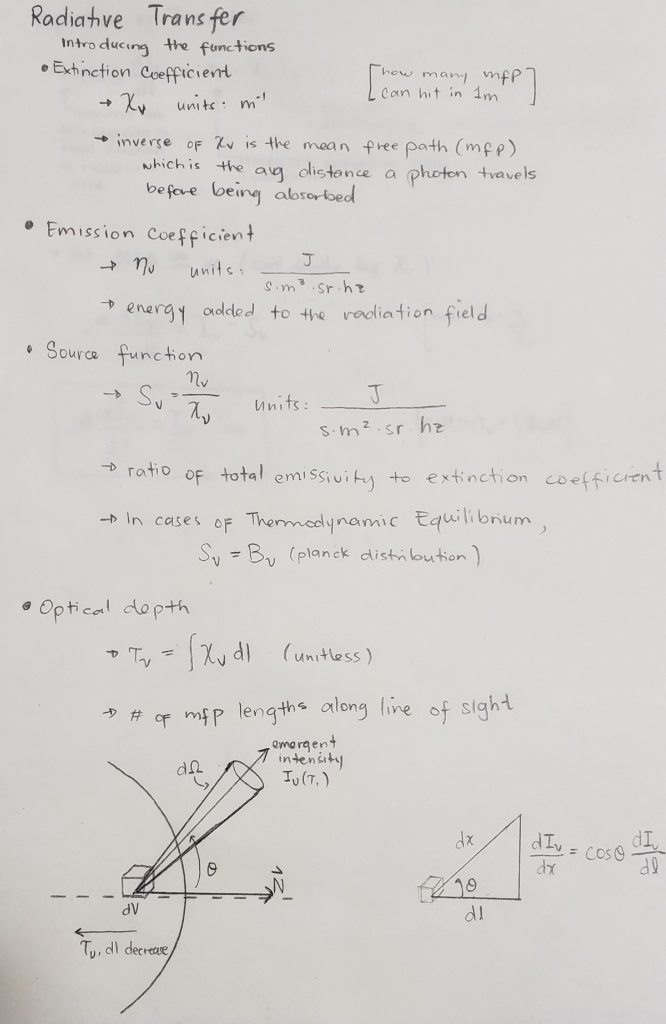 Radiative Transfer
Introducing the functions
• Extinction Coefficient
[how many mfp
can hit in 1m]
→ χν units: m⁻¹
→ inverse of χν is the mean free path (mfp)
which is the avg distance a photon travels
before being absorbed
• Emission Coefficient
→ ην units: J / s·m³·sr·hz
→ energy added to the radiation field
• Source function
→ Sν = ην / χν units: J / s·m²·sr hz
→ ratio of total emissivity to extinction coefficient
→ In cases of Thermodynamic Equilibrium,
Sν = Bν (planck distribution)
• Optical depth
→ τν = ∫ χν dl (unitless)
→ # of mfp lengths along line of sight
emergent
intensity
Iν(τ,)
dΩ
θ
N⃗
dV
τν, dl decrease
dx
θ
dl
dIν/dx = cosθ dIν/dl